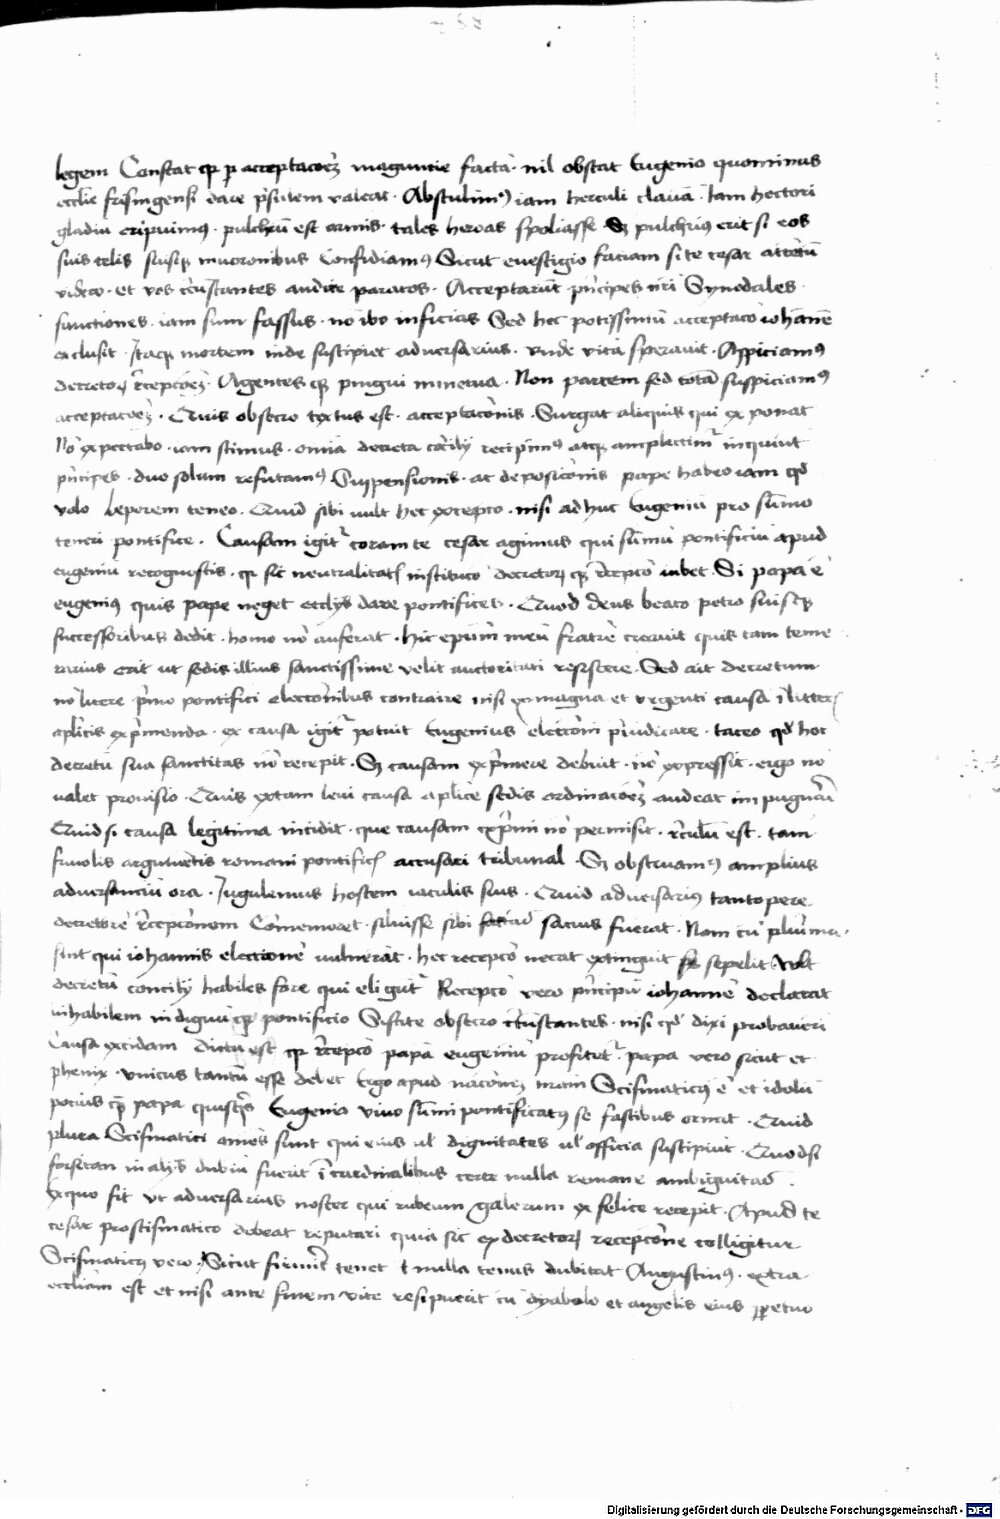 legem Constat qp p acceptacoẽz maguntie facta · nil obstat Eugenio quominus
ecclie frisingensi dare p̃sulem valeat · Abstulimꝰ iam herculi clavã · Iam hectori
gladiũ eripuimꝰ · pulchrũ est armis tales heroas spoliasse Sꝫ pulchriꝰ erit si eos
suis telis suisqꝫ mucronibus Confodiamꝰ Sicut evestigio faciam si te cesar attẽtũ
video · et vos c̃cũstantes audire paratos · Acceptarũt prĩcipes nri Synodales
sanctiones · iam sum fassus · nõ ibo inficias Sed hec potissimũ acceptacõ iohanẽ
exclusit · Itaqꝫ mortem inde suscipiet adversarius · vnde vitã speravit · Aspiciamꝰ
decretoꝝ r̃cepcõeꝫ · Agentes qꝫ pingui minerva · Non partem sed totã suspiciamꝰ
acceptacõeꝫ · Quis obsecro textus est · acceptacõnis · Surgat aliquis qui exponat
Nõ expectabo · iam scimus · omia decreta cõcilij recipimꝰ atqꝫ amplectimr̃ inquiunt
prĩcipes · duo solum refutamꝰ Suspensionis · ac deposicõnis pape habeo iam qd̃
volo leporem teneo · Quid sibi vult hec excepcõ · nisi adhuc Eugeniũ pro sũmo
teneri pontifice · Causam igitr̃ coram te cesar agimus qui sũmũ pontificiũ apud
eugeniũ recognoscis · qp sic neutralitatꝭ institucõ decretoꝝ qꝫ r̃cepcõ iubet · Si papa ẽ
eugeniꝰ quis pape neget ecclijs dare pontifices · Quod deus beato petro suisqꝫ
successoribus dedit · homo nõ auferat · hic ep̃um meũ fratrẽ creavit quis tam teme
rarius erit ut sedis illius sanctissime velit auctoritati resistere · Sed ait decretum
nõ licere prĩmo pontifici electionibus contraire nisi ex magna et vrgenti causa ĩ litterꝭ
aplicis exp̃menda · ex causa igitr̃ potuit Eugenius electioni p̃iudicare · taceo qd̃ hoc
decretũ sua sanctitas nõ recepit · Sꝫ causam exp̃mere debuit · nõ expressit · ergo nõ
valet provisio · Quis extam levi causa aplice sedis ordinacõeꝫ audeat impugnar̃
Quid si causa legitima incidit · que causam exp̃mi nõ permisit · r̃culũ est · tam
frivolis argumẽtis romani pontificꝭ accusari tribunal · Sꝫ observamꝰ amplius
adversanciũ ora · Iugulemus hostem iaculis suis · Quid adversariꝰ tantopere
decretorẽ r̃cepcõnem Cõmemoret · siluisse sibi sacius fuerat · Nam cũ plur̃ima
sint qui iohannis electionẽ vulnerãt · hec recepcõ necat extinguit sepelit Volt
decretũ concilij habiles fore qui eligũt Recepcõ vero prĩcipũ iohannẽ declarat
inhabilem indignũqꝫ pontificio Sistite obsecro c̃cũstantes · nisi qd̃ dixi probaveri
Causa excidam Dictũ est qp r̃cepcõ papã eugeniũ profitetr̃ · papa vero sicut et
phenix · vnicus tantũ esse debet Ergo apud nacõneꝫ nram Scismaticꝰ ẽ et idolũ
pociꝰ qꝫ papa quisqꝭ Eugenio vivo sũmi pontificatꝰ se fastibus ornat · Quid
plura Scismatici omẽs sunt qui eius vl̃ dignitates vl̃ officia suscipiũt · Quodsi
forsitan in alijs dubiũ fuerit ĩ cardinalibus certe nulla remanẽ ambiguitas
Exquo fit vt adversarius noster qui rubeum galerum ex felice recepit · Apud te
cesar proscismatico debeat reputari quia sic ex decretoꝝ recepcõne colligitur
Scismaticꝰ vero · Sicut firmit̃ tenet & nulla tenus dubitat Augustinꝰ · extra
eccliam est et nisi ante finem vite resipuerit cũ dyabolo et angelis eius ppetuo
Digitalisierung gefördert durch die Deutsche Forschungsgemeinschaft - DFG